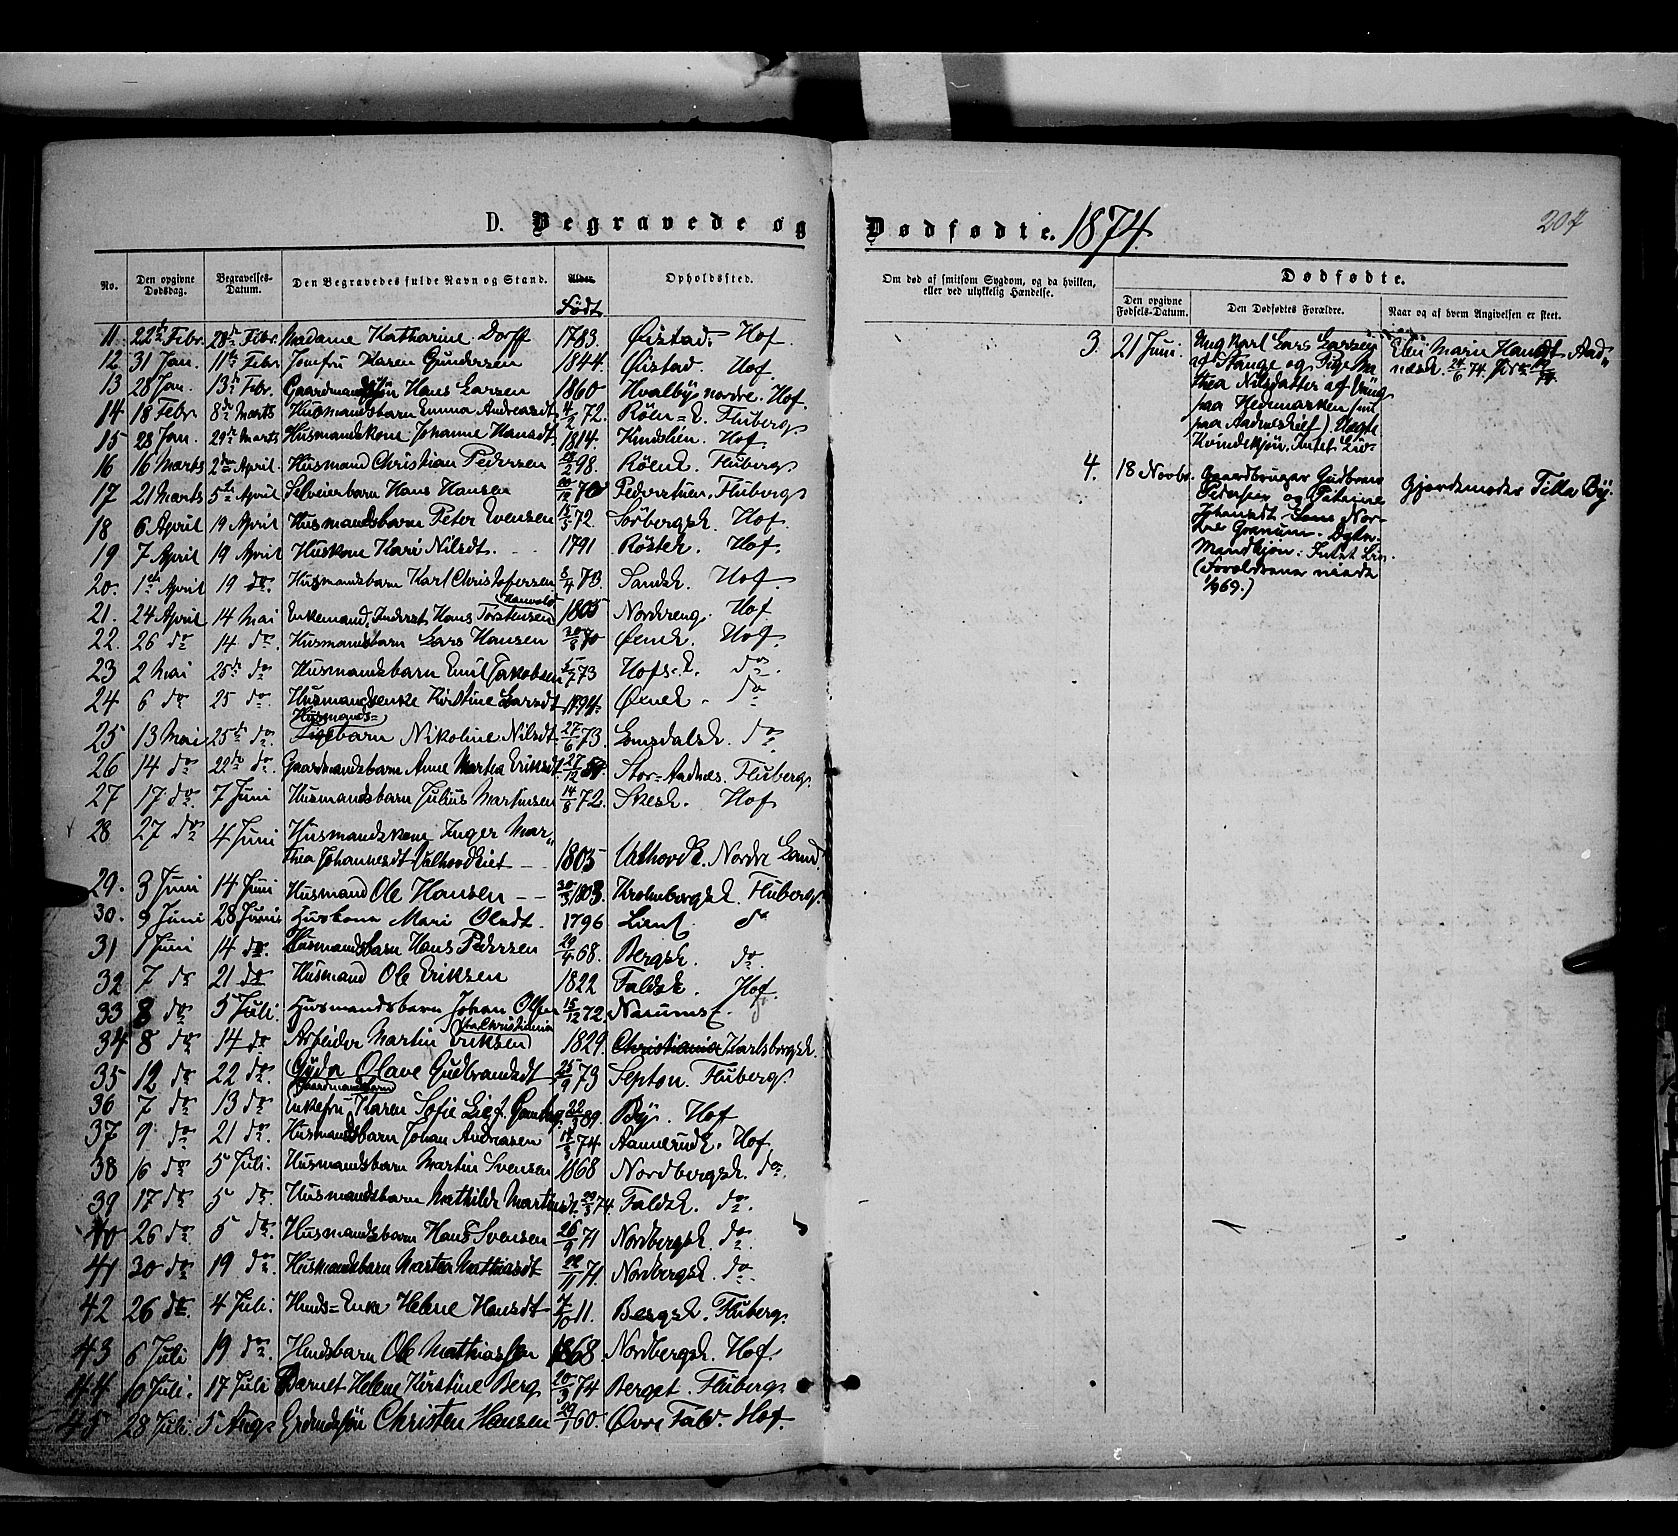 D. Begravede og
No. Den opgivne Dødsdag. Begravelses-Datum. Den Begravedes fulde Navn og Stand. Alder. Født Opholdssted.
11. 22de Febr. 28de Febr. Madame Katharine Dorff 1783. Øistad. Hof.
12 31 Jan. 11te Febr Jomfru Karen Gundersen 1844. Øistad. Hof.
13 28 Jan. 13de Febr. Gaardmandssøn Hans Larsen 1860 Hvalbye nordre. Hof.
14 18 Febr 8de Marts Husmandsbarn Emma Andreasdt 4/2 72. Røen=E. Fluberg.
15 28 Jan. 29de Marts Husmandskone Johanne Hansdt. 1814. Kindslien. Hof.
16 16 Marts 2den April. Husmand Christian Pedersen 98. Røene. Fluberg.
17 21 Marts 5te April Selveierbarn Hans Hansen 70 Pederstuen. Fluberg.
18 6 April 19 April Husmandsbarn Peter Evensen 15/3 72. Sørbergsk. Hof.
19 7 April 19 April Huskone Kari Nilsdt. 1791 Røstek. Hof.
20. 1ste April 19 do. Husmandsbarn Karl Christofersen 73. Sandsk. Hof
21. 24 April 14 Mai Enkemand, Inderst Hans Torstensen 1805 Nordreeng. Hof
22. 26 do 14 do. Husmandsbarn Lars Hansen 70 Øenek. Hof.
23 2 Mai 25de do Husmandsbarn Emil Jakobsen 73 Hofs-E. do.
24 6 do 25 do. Husmandsenke Kirstine Larsdt 1794. Øenek. do
Husmands=
25 13 Mai 25de do. Pigebarn Nikoline Nilsdt. 27/6 73. Lomsdalsk. do.
26 14 do 22de do. Gaardmandsbarn Anne Marthea Eriksdt 27/12 Stor=Aadnæs. Fluberg.
27 17 do. 7 Juni Husmandsbarn Julius Martinsen 14/8 72. Skesk. Hof
28 27 do 4 Juni Husmandskone Inger Mar=
thea Johannesdt Valhovdeiet 1803 Valhovdk. Nordre Land
29. 3 Juni 14 Juni Husmand Ole Hansen 1803. Fluberg.
30. 9 Juni 28 Juni Huskone Mari Olsdt. 1796 Lien do
31 1 Juni 14 do. Husmandsbarn Hans Pedersen 29/4 68. Bergsk. do.
32 7 do 21 do Husmand Ole Eriksen 1822 Faldsk. Hof.
33 8 do 5 Juli. Husmandsbarn Johan Olsen 15/12 72 Narums
fra Christiania
34 8 do 14 do Arbeider Martin Eriksen 1829. Christiania Karlsbergsk.
35 12 do 22 do. Gyda Olave Gudbrandsdt 25/9 73 Septon. Fluberg.
Gaardmandsbarn
36 7 do 13 do Enkefru Karen Sofie 22/3 89. Bÿ. Hof
37 9. do 21 do. Husmandsbarn Johan Andreasen 74. Aannerudk. Hof
38 16 do 5 Juli. Husmandsbarn Martin Svensen 1868 Nordbergsk. do.
39 17 do 5 do. Husmandsbarn Mathilde 74. Faldsk. do.
40 26 do 5 do. Husmandsbarn Hans Svensen 26/9 71 Nordbergsk. do.
41 30 do 19 do. Husmandsbarn Marthe Mathiasdt 71. Nordbergsk. do.
42 26 do. 4 Juli. Hmds=Enke Helene Hansdt 11. Bergsk. Fluberg.
43 6 Juli 19 do. Hmdsbarn Ole Mathiassen 1868. Nordbergsk. Hof.
44 10 Juli. 17 Juli Barnet Helene Kirstine Berg 20/3 74 Berget. Fluberg.
45 28 Juli 5 Aug. Christen Hansen 29/1 60. Øvre Fald. Hof.
Dødfødte. 1874.
207
Om død af smitsom Sygdom, og da hvilken, eller ved ulykkelig Hændelse.
Dødfødte.
Den opgivne Fødsels-Datum. Den Dødfødtes Forældre. Naar og af hvem Angivelsen er skeet.
3. 21 Juni. Ung Karl Lars Larsen
af Stange og Pige Ma
thea Nilsdatter af Vang
paa Hedemarken (nu
paa Aadneseiet). Uægte
Kvindekjøn. Intet Liv.
Marie Hansdt Aad=
næsk. 24/6 74
4. 18 Novbr. Gaardbruger Gudbrand
Pedersen og Petrine
Johansdt Lens Nor=
dre Granum. Døbn.
Mandkjøn. Intet Liv.
(Forældrene viede
1869.)
Gjordemoder Tilla Bÿ.